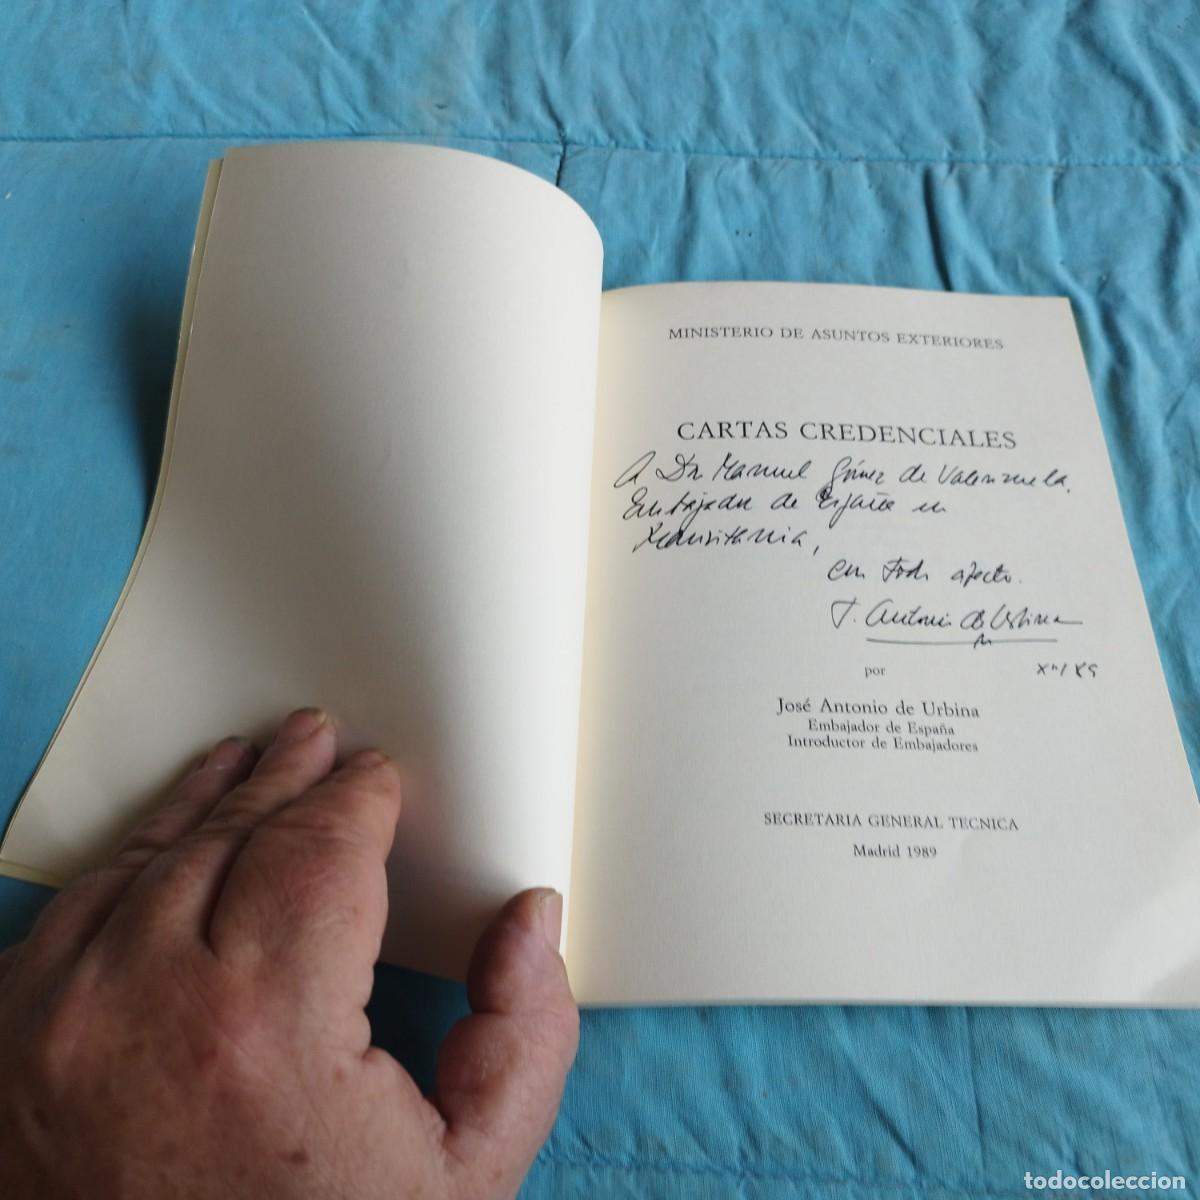 MINISTERIO DE ASUNTOS EXTERIORES
CARTAS CREDENCIALES
A Dn Manuel Gómez de Valenzuela,
Embajador de España en
Mauritania,
con todo afecto.
J. Antonio de Urbina
por
José Antonio de Urbina
Embajador de España
Introductor de Embajadores
SECRETARIA GENERAL TECNICA
Madrid 1989
todocoleccion